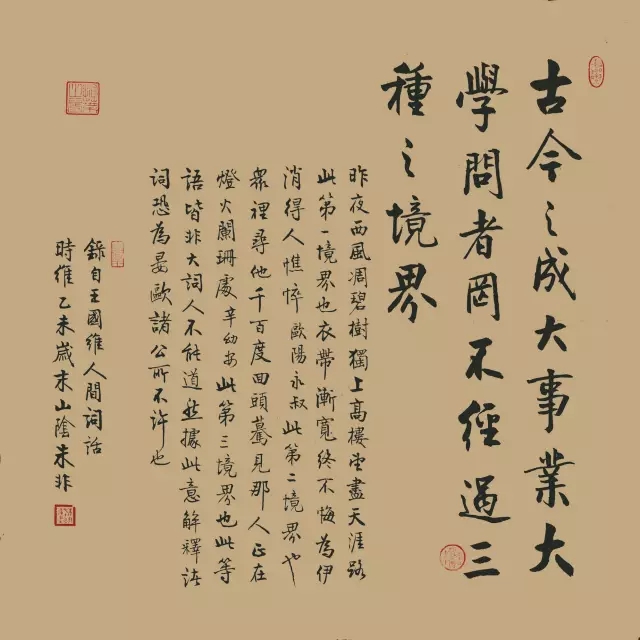 古今之成大事業大
學問者罔不經過三
種之境界
昨夜西風凋碧樹獨上高樓望盡天涯路
此第一境界也衣帶漸寬終不悔為伊
消得人憔悴歐陽永叔此第二境界也
衆裡尋他千百度回頭驀見那人正在
燈火闌珊處辛幼安此第三境界也此等
語皆非大詞人不能道然據此意解釋諸
詞恐為晏歐諸公所不許也
錄自王國維人間詞話
時維乙未歲末山陰朱非